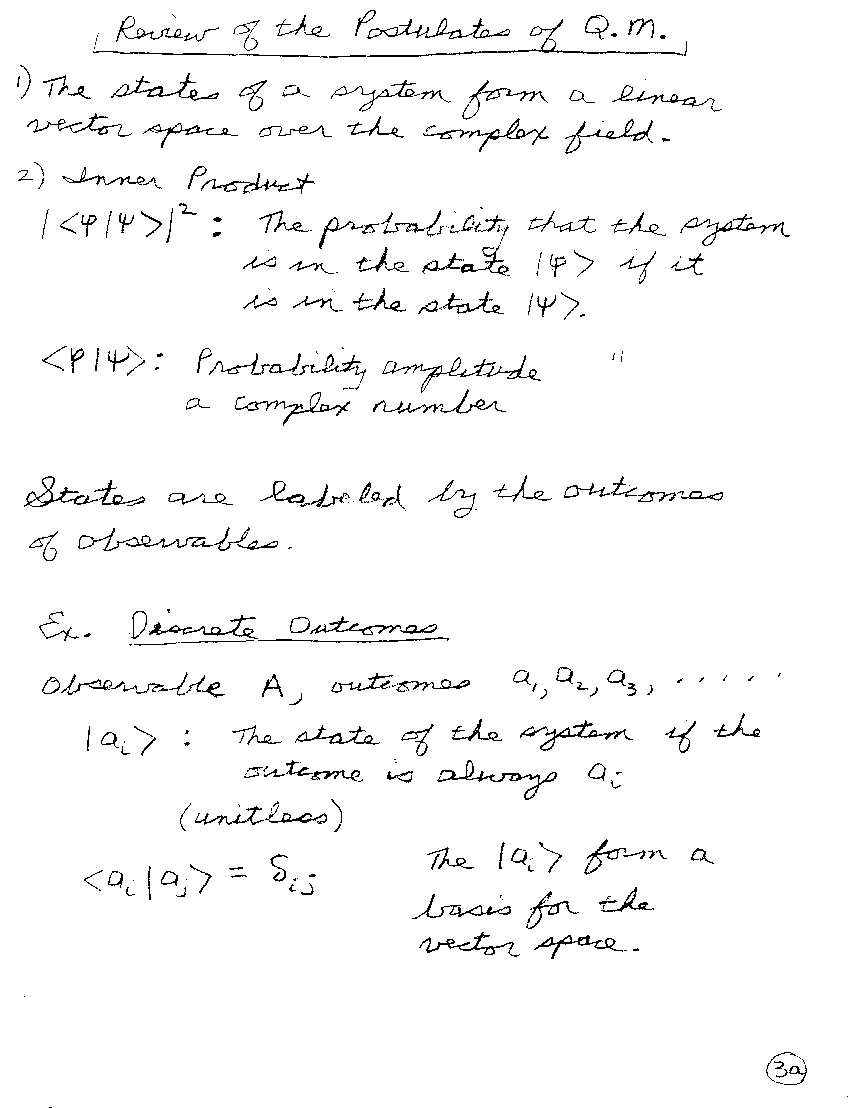 Review of the Postulates of Q.M.
1) The states of a system form a linear
vector space over the complex field.
2) Inner Product
|<φ|ψ>|² : The probability that the system
is in the state |φ> if it
is in the state |ψ>.
<φ|ψ> : Probability amplitude "
a complex number
States are labeled by the outcomes
of observables.
Ex. Discrete Outcomes
Observable A, outcomes a₁, a₂, a₃, .....
|aᵢ> : The state of the system if the
outcome is always aᵢ
(unitless)
<aᵢ|aⱼ> = δᵢⱼ The |aᵢ> form a
basis for the
vector space.
3a